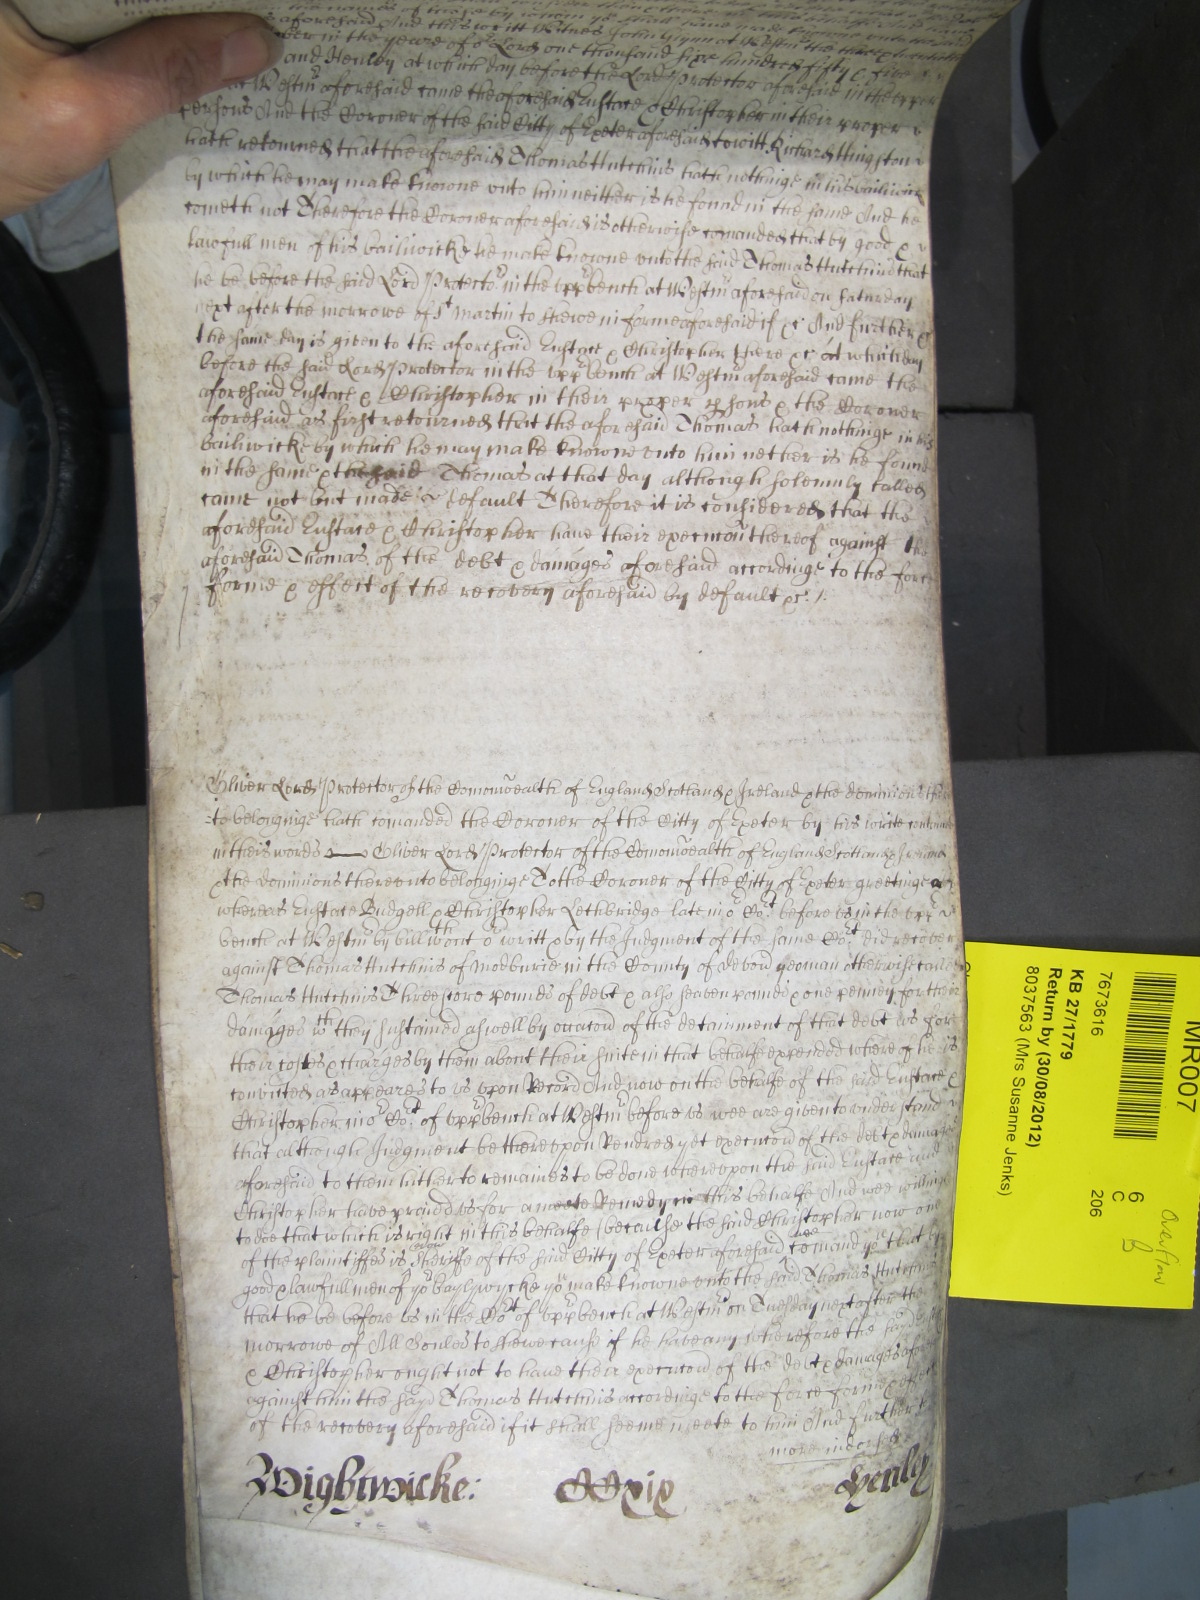 the names of those by whom
aforesaid And this writt Witnes John Glynn at Westm the
in the yeare of or Lord one thousand sixe hundred fifty & five
and Henley at which day before the Lord Protector aforesaid in the upper
at Westm aforesaid came the aforesaid Eustace & Christopher in their proper
persons And the Coroner of the said Citty of Exeter aforesaid to witt Richard
hath retourned that the aforesaid Thomas Hutchins hath nothinge in his bailiwicke
by which he may make knowne vnto him neither is he found in the same And he
cometh not Therefore the Coroner aforesaid is otherwise comanded that by good &
lawfull men of his bailiwicke he make knowne vnto the said Thomas Hutchins that
he be before the said Lord Protector in the vppr bench at Westm aforesaid on Saturday
next after the morrowe of St Martin to shewe in forme aforesaid if &c And further
the same day is given to the aforesaid Eustace & Christopher there &c At which day
before the said Lord Protector in the vppr bench at Westm aforesaid came the
aforesaid Eustace & Christopher in their proper psons & the Coroner
aforesaid as first retourned that the aforesaid Thomas hath nothinge in his
bailiwicke by which he may make knowne vnto him nether is he found
in the same & the said Thomas at that day although solemnly called
came not but made default Therefore it is considered that the
aforesaid Eustace & Christopher have their execucon thereof against the
aforesaid Thomas of the debt & damages aforesaid accordinge to the force
forme & effect of the recovery aforesaid by default &c
Oliver Lord Protector of the Comonwealth of England Scotland & Ireland & the dominions there
to belonginge hath comanded the Coroner of the Citty of Exeter by his write
in theis words Oliver Lord Protector of the Comonwealth of England Scotland & Ireland
& the dominions therevnto belonginge To the Coroner of the Citty of Exeter greetinge
whereas Eustace Budgell & Christopher Lethbridge late in or Cort before vs in the vppr
bench at Westm by bill wthout or writt & by the Judgment of the same Cort did recover
against Thomas Hutchins of Modburie in the County of Devon yeoman otherwise called
Thomas Hutchins Threescore pounds of debt & also seaven pounds & one penney for their
damages wch they sustained aswell by occacon of the detainment of that debt as for
their costes & charges by them about their suite in that behalfe expended whereof he is
convicted as appeares to vs vpon Record And now on the behalfe of the said Eustace &
Christopher in or Cort of vppr bench at Westm before vs wee are given to vnderstand
that although Judgment be therevpon Rendred yet execucon of the debt & damages
aforesaid to them hitherto remaines to be done wherevpon the said Eustace and
Christopher have prayed vs for a meete Remedy in this behalfe And wee willinge
to doe that which is right in this behalfe (because the said Christopher now one
of the plaintiffes is Sheriffe of the said Citty of Exeter aforesaid comand yow that by
good & lawfull men of yor baylywycke yow make knowne vnto the said Thomas Hutchins
that he be before vs in the Cort of vppr bench at Westm on Tuesday next after the
morrowe of All Soules to shewe cause if he have any wherefore the sayd
& Christopher ought not to have their execucon of the debt & damages aforesaid
against him the sayd Thomas Hutchins accordinge to the force forme & effect
of the recovery aforesaid if it shall seeme meete to him And further
more
Wightwicke: CCxix Henley
MR007
7673616
6
C
206
KB 27/1779
Return by (30/08/2012)
8037563 (Mrs Susanne Jenks)